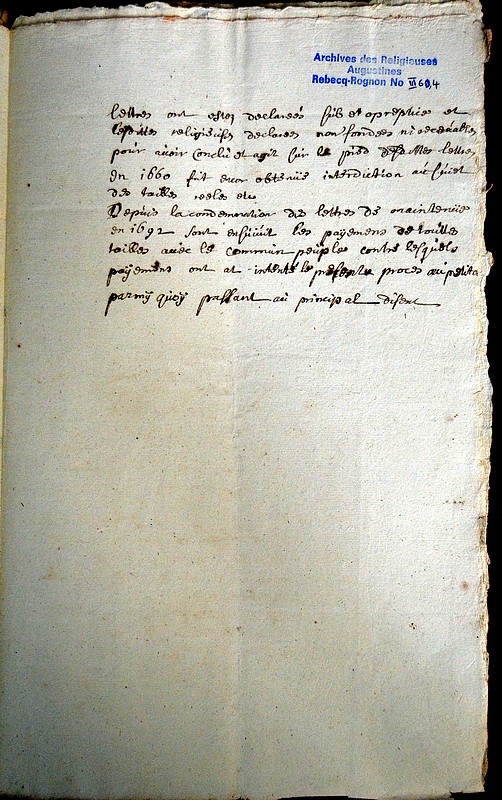 Archives des Religieuses
Augustines
Rebecq-Rognon No VI 694
lettres ont estez declareés sub et opreptice et
lesdittes religieuses declarees non fondees ni recevables
pour avoir conclu et agit sur le pied desdittes lettres
en 1660 fut encor obtenue interdiction au sujet
des tailles reeles etc
Depuis la condemnation des lettres de maintenue
en 1692 sont ensuivit les payemens de touttes
tailles avec le commun peuple contre lesquels
payemens ont at intenté le present proces au petitoir
parmÿ quoÿ passant au principal disent